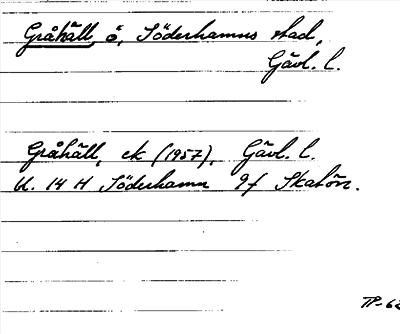 Gråhäll, ö, Söderhamns stad,
Gävl. l.
Gråhäll, ek (1957), Gävl. l.
bl. 14 H Söderhamn 9f Skatön.
TP-62